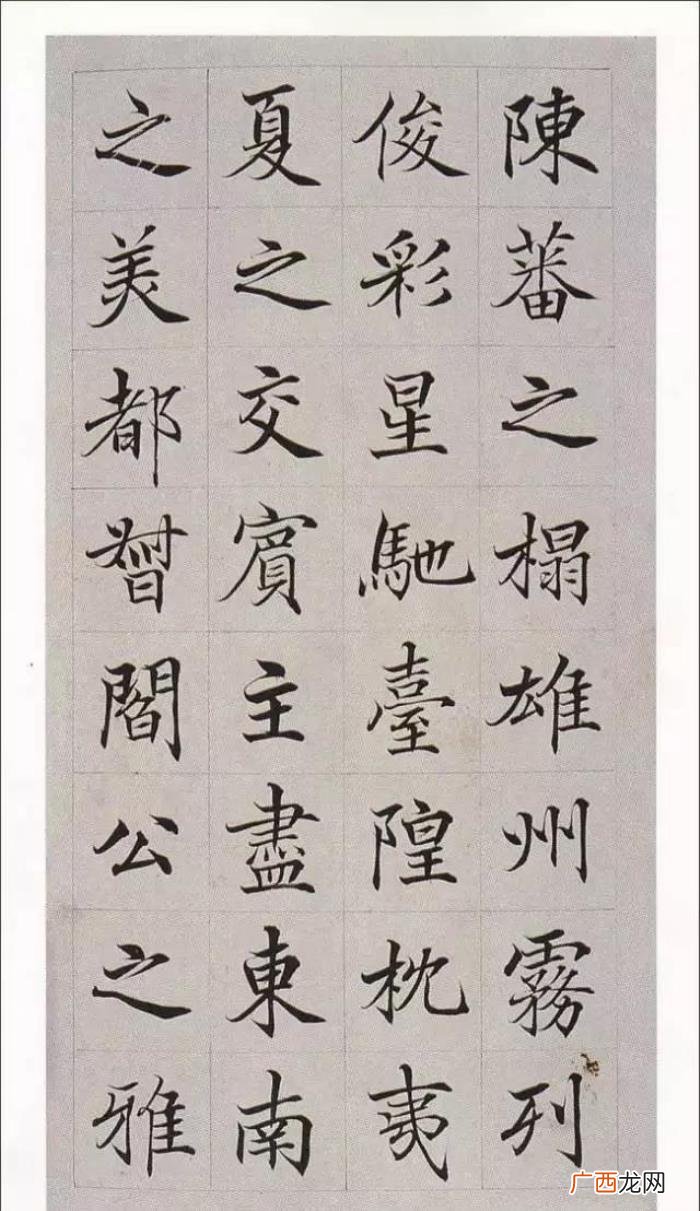 陳蕃之榻雄州霧列
俊彩星馳臺隍枕夷
夏之交賓主盡東南
之美都督閻公之雅
广西龙网